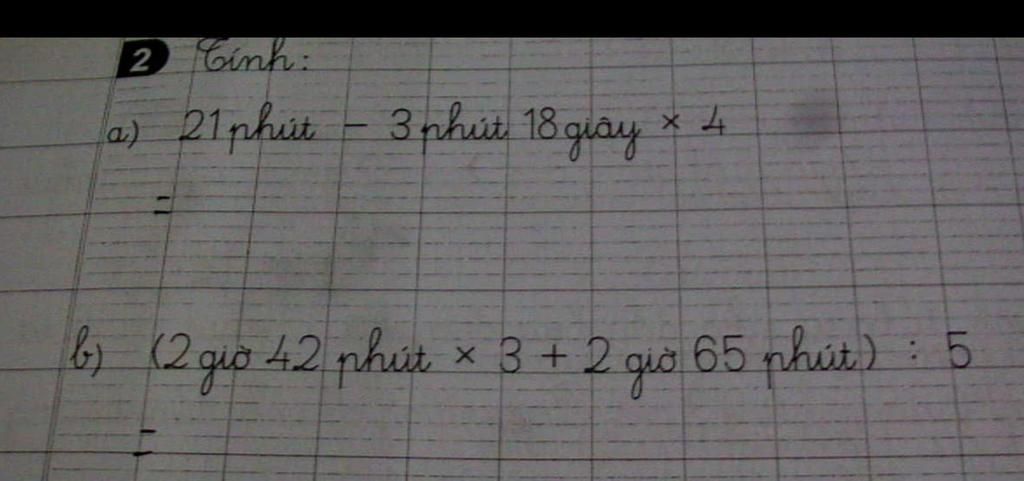 2 Tính:
a) 21 phút - 3 phút 18 giây × 4
=
b) (2 giờ 42 phút × 3 + 2 giờ 65 phút) : 5
=